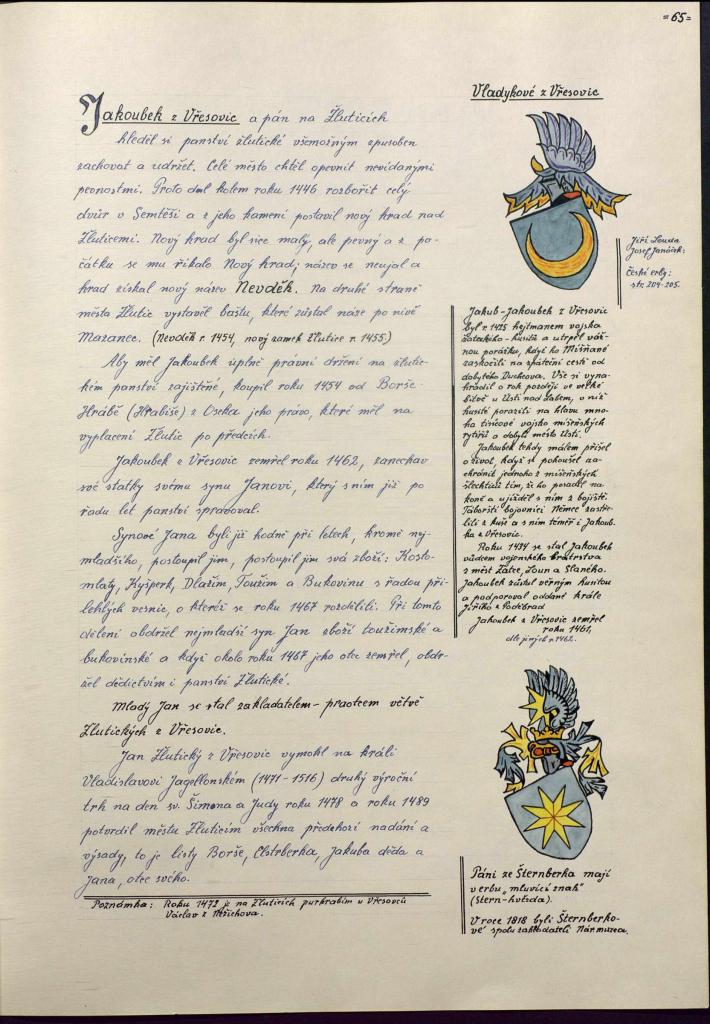 =65=
Jakoubek z Vřesovic a pán na Žluticích
hleděl si panství žlutické všemožným způsobem
zachovat a udržet. Celé město chtěl opevnit nevídanými
pevnostmi. Proto dal kolem roku 1446 rozbořit celý
dvůr v Semtěši a z jeho kamení postavil nový hrad nad
Žluticemi. Nový hrad byl sice malý, ale pevný a z po-
čátku se mu říkalo Nový hrad; název se neujal a
hrad získal nový název Nevděk. Na druhé straně
města Žlutic vystavěl baštu, které zůstal název po nivě
Mazanec. (Nevděk r. 1454, nový zámek Žlutice r. 1455)
Aby měl Jakoubek úplné právní držení na žlutic-
kém panství zajištěné, koupil roku 1454 od Borše-
Hrábě (Hrabiše) z Oseka jeho právo, které měl na
vyplacení Žlutic po předcích.
Jakoubek z Vřesovic zemřel roku 1462, zanechav
své statky svému synu Janovi, který s ním již po
řadu let panství spravoval.
Synové Jana byli již hodně při letech, kromě nej-
mladšího, postoupil jim, postoupil jim svá zboží: Kosto-
mlaty, Kyšperk, Dlažim, Toužim a Bukovinu s řadou při-
lehlých vesnic, o kteréž se roku 1467 rozdělili. Při tomto
dělení obdržel nejmladší syn Jan zboží toužimské a
bukovinské a když okolo roku 1467 jeho otec zemřel, obdr-
žel dědictvím i panství Žlutické.
Mladý Jan se stal zakladatelem - praotcem větvě
Žlutických z Vřesovic.
Jan Žlutický z Vřesovic vymohl na králi
Vladislavovi Jagellonském (1471-1516) druhý výroční
trh na den sv. Šimona a Judy roku 1478 a roku 1489
potvrdil městu Žluticím všechna předchozí nadání a
výsady, to je listy Borše, Elstrberka, Jakuba děda a
Jana, otce svého.
Poznámka: Roku 1472 je na Žluticích purkrabím u Vřesovců
Václav z Nežichova.
Vladykové z Vřesovic
Jiří Louda
Josef Janáček:
České erby:
str. 204-205.
Jakub-Jakoubek z Vřesovic
byl r. 1425 hejtmanem vojska
žateckého-husitů a utrpěl váž-
nou porážku, když ho Míšňané
zaskočili na zpáteční cestě od
dobytého Duchcova. Vše si vyna-
hradil o rok později ve velké
bitvě u Ústí nad Labem, v níž
husité porazili na hlavu mno-
ha tisícové vojsko míšeňských
rytířů a dobyli město Ústí.
Jakoubek tehdy málem přišel
o život, když se pokoušel za-
chránit jednoho z míšeňských
šlechticů tím, že ho posadil na
koně a ujížděl s ním z bojiště.
Táborští bojovníci Němce zastře-
lili z kuše a s ním téměř i Jakoub-
ka z Vřesovic.
Roku 1434 se stal Jakoubek
vůdcem vojenského bratrstva
z měst Žatec, Loun a Slaného.
Jakoubek zůstal věrným husitou
a podporoval oddaně krále
Jiřího z Poděbrad
Jakoubek z Vřesovic zemřel
roku 1461,
dle jiných r. 1462.
Páni ze Šternberka mají
v erbu "mluvící znak"
(Stern-hvězda).
V roce 1818 byli Šternberko-
vé spolu zakladateli Nár. muzea.